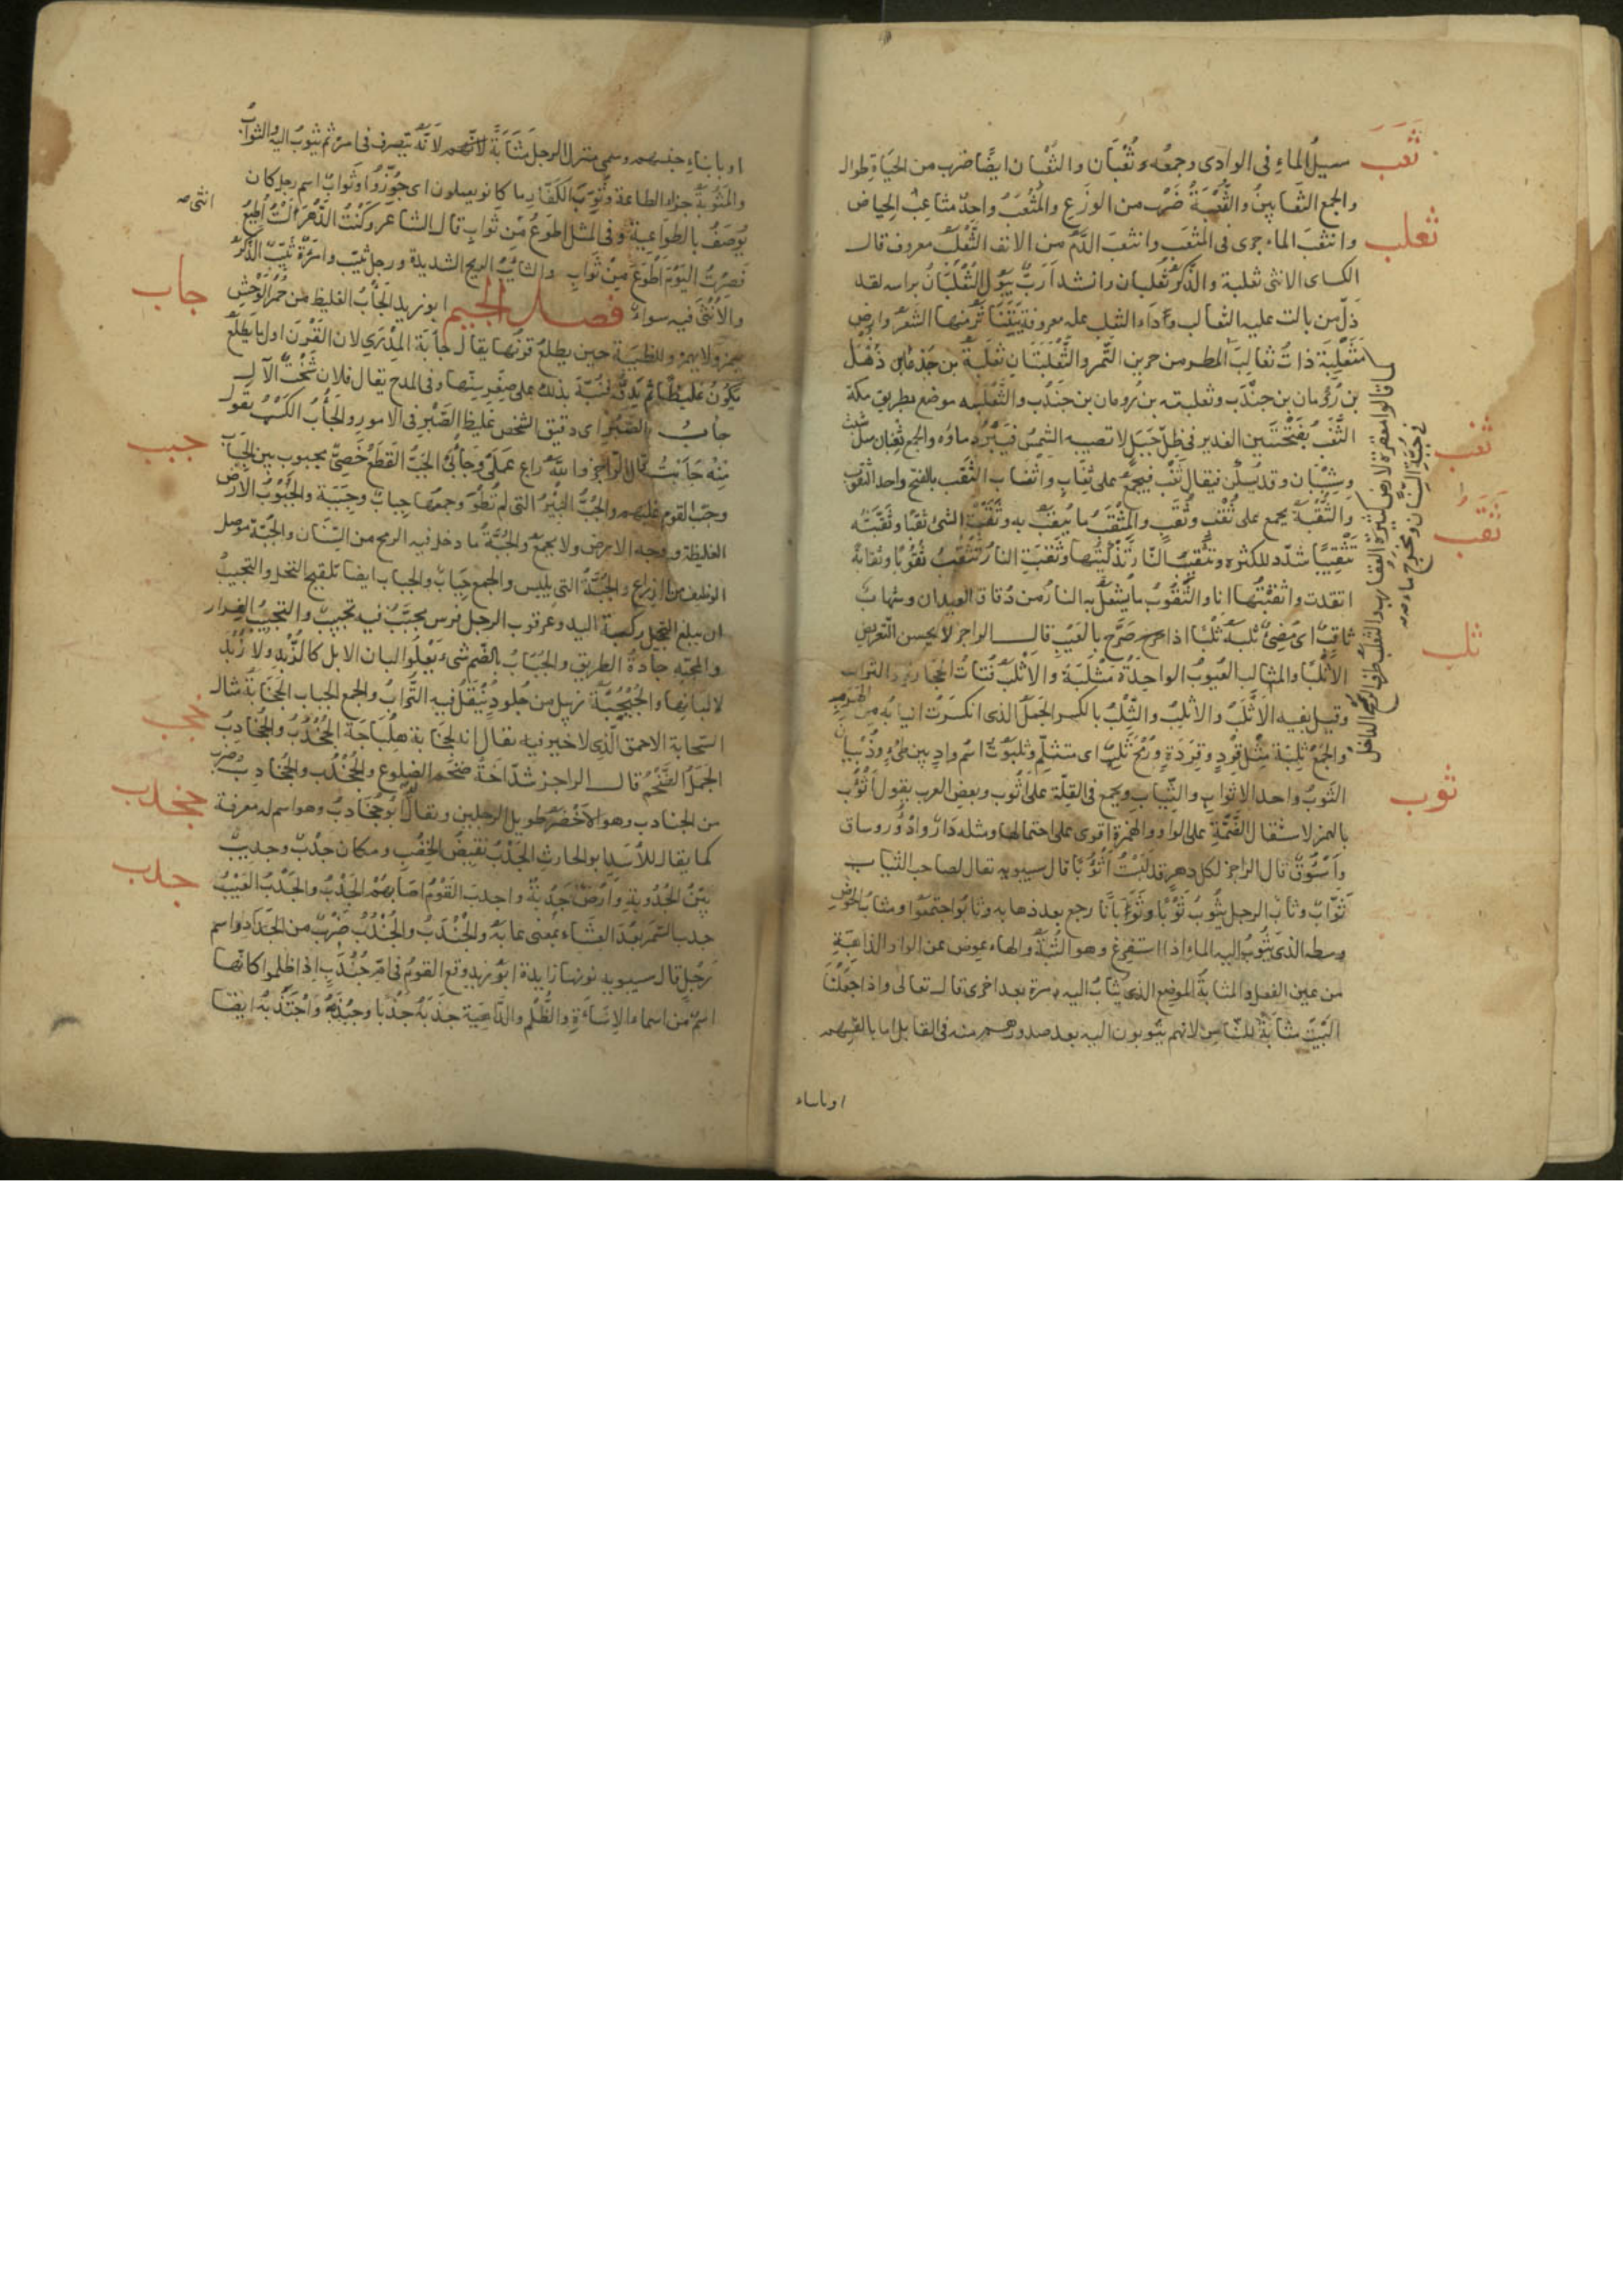 ثعب
سيل الماء فى الوادى وجمعه ثعبان والثعبان ايضا ضرب من الحياة طوال
والجمع الثعابين والثعبة ضرب من الوزغ والمثعب واحد مثاعب الحياض
ثعلب
وانثعب الماء جرى فى المثعب وانثعب الدم من الانف الثعلب معروف قال
الكساى الانثى ثعلبة والذكر ثعلبان وانشد ارب يبول الثعلبان براسه لقد
ذل من بالت عليه الثعالب وداء الثعلب علة معروفة يتناثر منها الشعر وارض
مثعلبة ذات ثعالب المطر من جرين التمر والثعلبتان ثعلبة بن جذعا بن ذهل
بن رومان بن جندب وثعلبة بن رومان بن جندب والثعلبية موضع بطريق مكة
ثغب
الثغب بفتحتين الغدير فى ظل جبل لا تصيبه الشمس فيبرد ماؤه والجمع ثغبان مثل شبث
وشبثان وقد يسكن فيقال ثغب فيجمع على ثغاب واثغاب الثقب بالفتح واحد الثقوب
ثقب
والثقبة يجمع على ثقب وثقب والمثقب ما يثقب به وثقبت الشئ ثقبا وثقبته
تثقيبا شدد للكثرة وتثقيب النار تذكيتها وثقبت النار تثقب ثقوبا وثقابة
اتقدت واثقبتها انا والثقوب ما يشعل به النار من دقاق العيدان وشهاب
ثلب
ثاقب اى مضئ ثلبه ثلبا اذا صرح بالعيب قال الراجز لا يحسن التعريض
الا ثلبا والمثالب العيوب الواحدة مثلبة والاثلب فتات الحجارة والتراب
وقيل بفيه الاثلب والاثلب والثلب بالكسر الجمل الذى انكسرت انيابه من الهرم
والجمع ثلبة مثل قرد وقردة ورمح ثلب اى متثلم وثلبوت اسم واد بين طى وذبيان
ثوب
الثوب واحد الاثواب والثياب ويجمع فى القلة على اثوب وبعض العرب يقول اثؤب
بالهمز لاستثقال الضمة على الواو والهمزة اقوى على احتمالها ومثله دار وادؤر وساق
واسؤق قال الراجز لكل دهر قد لبست اثؤبا قال سيبويه يقال لصاحب الثياب
ثواب وثاب الرجل يثوب ثوبا وثوبانا رجع بعد ذهابه وثابوا اجتمعوا ومثاب الحوض
وسطه الذى يثوب اليه الماء اذا استفرغ وهو الثبة والهاء عوض عن الواو الذاهبة
من عين الفعل والمثابة الموضع الذى يثاب اليه مرة بعد اخرى قال تعالى واذ جعلنا
البيت مثابة للناس لانهم يثوبون اليه بعد صدورهم منه فى القابل اما بانفسهم
او بابناء
او بابناء جنسهم وسمى منزل الرجل مثابة لانه يتصرف فى امره ثم يثوب اليه والثواب
والمثوبة جزاء الطاعة وثوب الكفار ما كانوا يعملون اى جوزوا وثواب اسم رجل كان
يوصف بالطواعية وفى المثل اطوع من ثواب قال الشاعر وكنت الدهر لست اطيع
انثى صه
فصرت اليوم اطوع من ثواب والثائب الريح الشديدة ورجل ثيب وامرأة ثيب الذكر
والانثى فيه سواء فصل الجيم ابو زيد الجأب الغليظ من حمر الوحش
جاب
يهمز ولا يهمز وللظبية حين يطلع قرنها يقال جابة المدرى لان القرن اول ما يطلع
يكون غليظا ثم يدق فنبه بذلك على صغر سنها وفى المدح يقال فلان شخت الآل
جاب الصبر اى دقيق الشخص غليظ الصبر فى الامور والجأب الكسب يقول
جبب
منه جأبت قال الراجز والله راع عملى وجأبى الجب القطع خصى مجبوب بين الجباب
وجب القوم غلبهم والجب البئر التى لم تطو وجمعها جباب وجببة والجبوب الارض
الغليظة ووجه الارض ولا يجمع والجبة ما دخل فيه الرمح من السنان والجبة موصل
الوظيف من الذراع والجبة التى يلبس والجمع جباب والجباب ايضا تلقيح النخل والتجبيب
ان يبلغ التحجيل ركبة اليد وعرقوب الرجل فرس مجبب فيه تجبيب والتجبيب الفرار
والمجبة جادة الطريق والجباب بالضم شئ يعلوا البان الابل كالزبد ولا زبد
لالبانها والجبجبة زبيل من جلود ينقل فيه التراب والجمع الجباجب الجخابة مثال
السحابة الاحمق الذى لا خير فيه يقال انه لجخابة هلباجة الجخدب والجخادب
الجمل الضخم قال الراجز شداخة ضخم الضلوع والجخدب والجخادب ضرب
جخدب
من الجنادب وهو الاخضر طويل الرجلين ويقال له ابو جخادب وهو اسم له معرفة
كما يقال للاسد ابو الحارث الجدب نقيض الخصب ومكان جدب وجديب
جدب
بين الجدوبة وارض جدبة واجدب القوم اصابهم الجدب والجدب العيب
جدب السمر بعد العشاء بمعنى عابه والجندب والجندب ضرب من الجراد واسم
رجل قال سيبويه نونها زايدة ابو زيد وقع القوم فى ام جندب اذا ظلموا كانها
اسم من اسماء الاساءة والظلم والداهية جذبه جذبا وجبذه واجتذبه ايضا